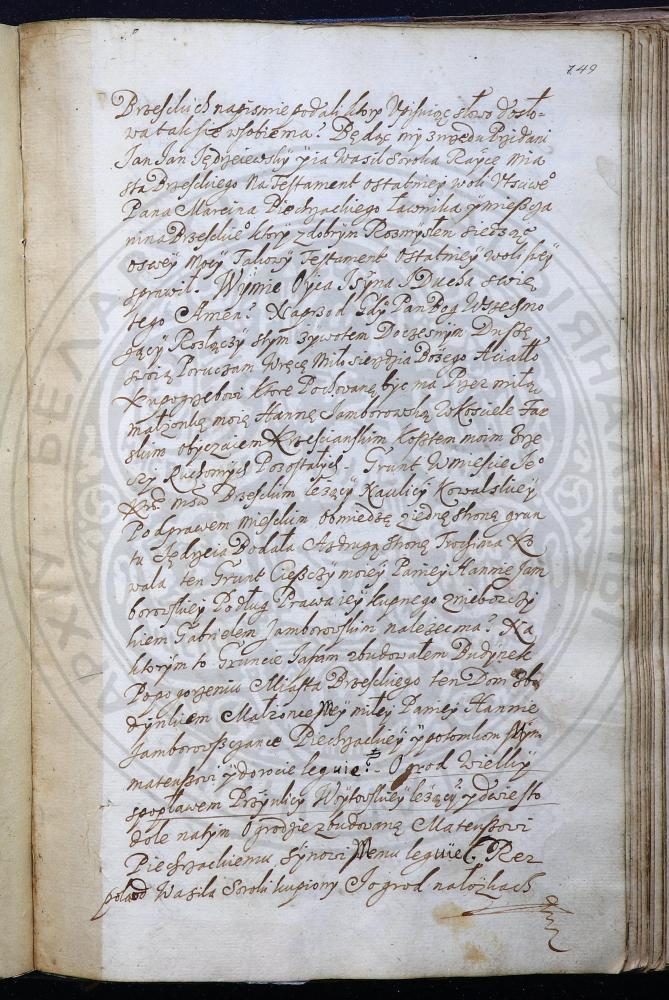 749
Brzeskich na pismie podali ktory Wpisuiąc słowo dosło-
wa tak się w sobie ma? Będąc my z urzędu Przydani
Jan Jan Jędrzeiewskÿ ÿ ia Wasil Soroka Rayce Mia
sta Brzeskiego Na Testament ostatniey woli Vtciwe°
Pana Marcina Piechrackiego Ławnika ÿ miescza
nina Brzeskie° ktorÿ z dobrÿm Rozmysłem siedząc
Takowÿ Testament Ostatnieÿ woli sweÿ
sprawił. W Imie Oÿca I Sÿna I Ducha Swię
tego Amen? Naprzod Gdÿ Pan Bog Wszechmo
gącÿ Rozłączÿ z tÿm Zÿwotem Doczesnÿm Duszę
swoię Poruczam W ręce Miłosierdzia Bożego A ciało
ku pogrzebowi Ktore Pochowane bÿc ma Przez miłą
małzonkę moię Hannę Jamborowską W Kosciele Far
skim obÿczaiem Krzescianskim Kosztem moim z rze
czÿ Ruchomÿch Pozostałÿch. Grunt W miescie Je°
Kr. msci Brzeskim leżącÿ Na ulicÿ Kowalskieÿ
Pod prawem mieskim o miedzę z iedną stronę grun
tu Jędrzeia Bodała A z drugą stronę
wala ten Grunt Cieszczÿ moieÿ Panieÿ Hannie Jam
borowskieÿ Podług Prawa ieÿ kupnego z nieboszczÿ
kiem Gabrielem Jamborowskim nalezec ma? Na
ktorÿm to Gruncie Ja sam zbudowałem Budÿnek
Po pogorzeniu Miasta Brzeskiego ten Dom z bu
dÿnkiem Małzonce Mÿ miłeÿ Panieÿ Hannie
Jamborowszczance Piechrackieÿ ÿ potomkom Mÿm
mateuszowi ÿ dorocie leguie?- Ogrod Wielkÿ
z popławem Przÿ ulicÿ Woÿtowskieÿ leżącÿ ÿ dwie sto
dole na tÿm Ogrodzie zbudowane Mateuszowi
Piechrackiemu sÿnowi Memu leguie. Rez
pola od Wasila Soroki kupionÿ I ogrod na łozkach